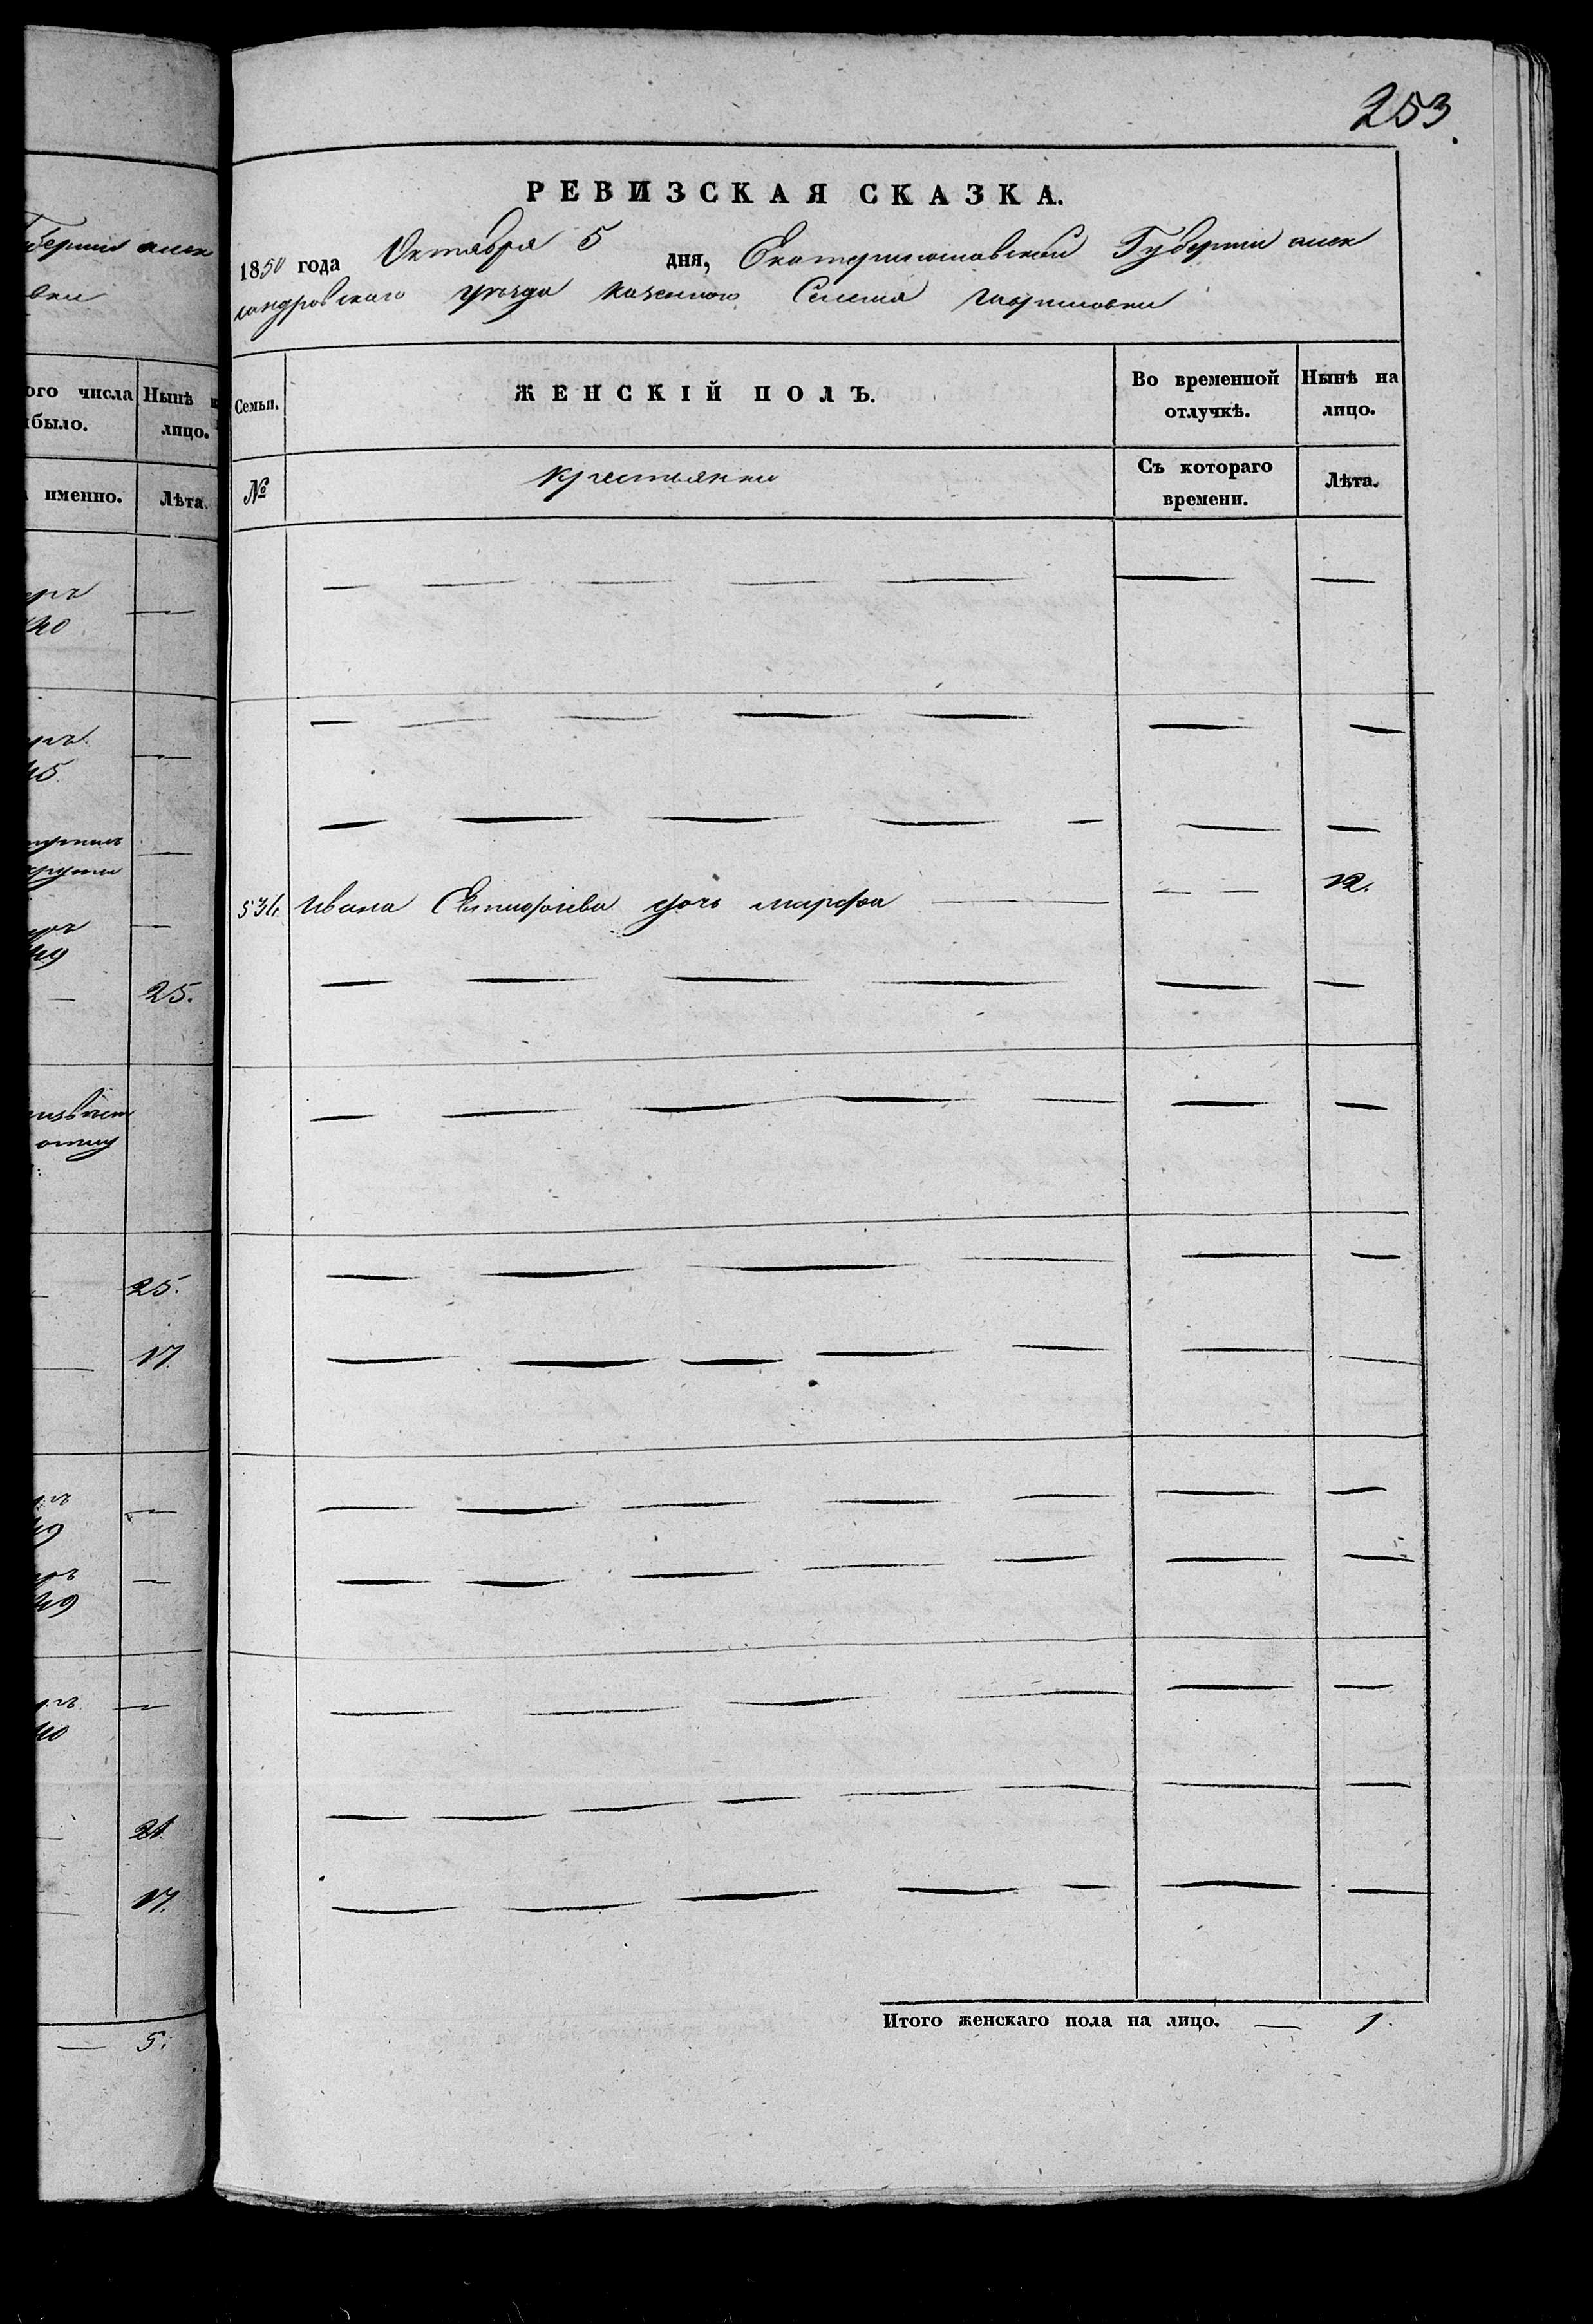 253.
РЕВИЗСКАЯ СКАЗКА.
1850 года Октября 5 дня, Екатеринославской Губерніи алек
сандровскаго уѣзда казенного Селенія гавриловки
Семьи. ЖЕНСКІЙ ПОЛЪ. Во временной отлучкѣ. Нынѣ на лицо.
№ крестьянки Съ котораго времени. Лѣта.
12.
Ивана дочь марфа
Итого женскаго пола на лицо. — 1.
Губерніи алек
вки
ого числа Нынѣ
было. лицо.
именно. Лѣта.
еръ
40
45
49
25.
25.
17.
49
49
40
21
17.
— 5.